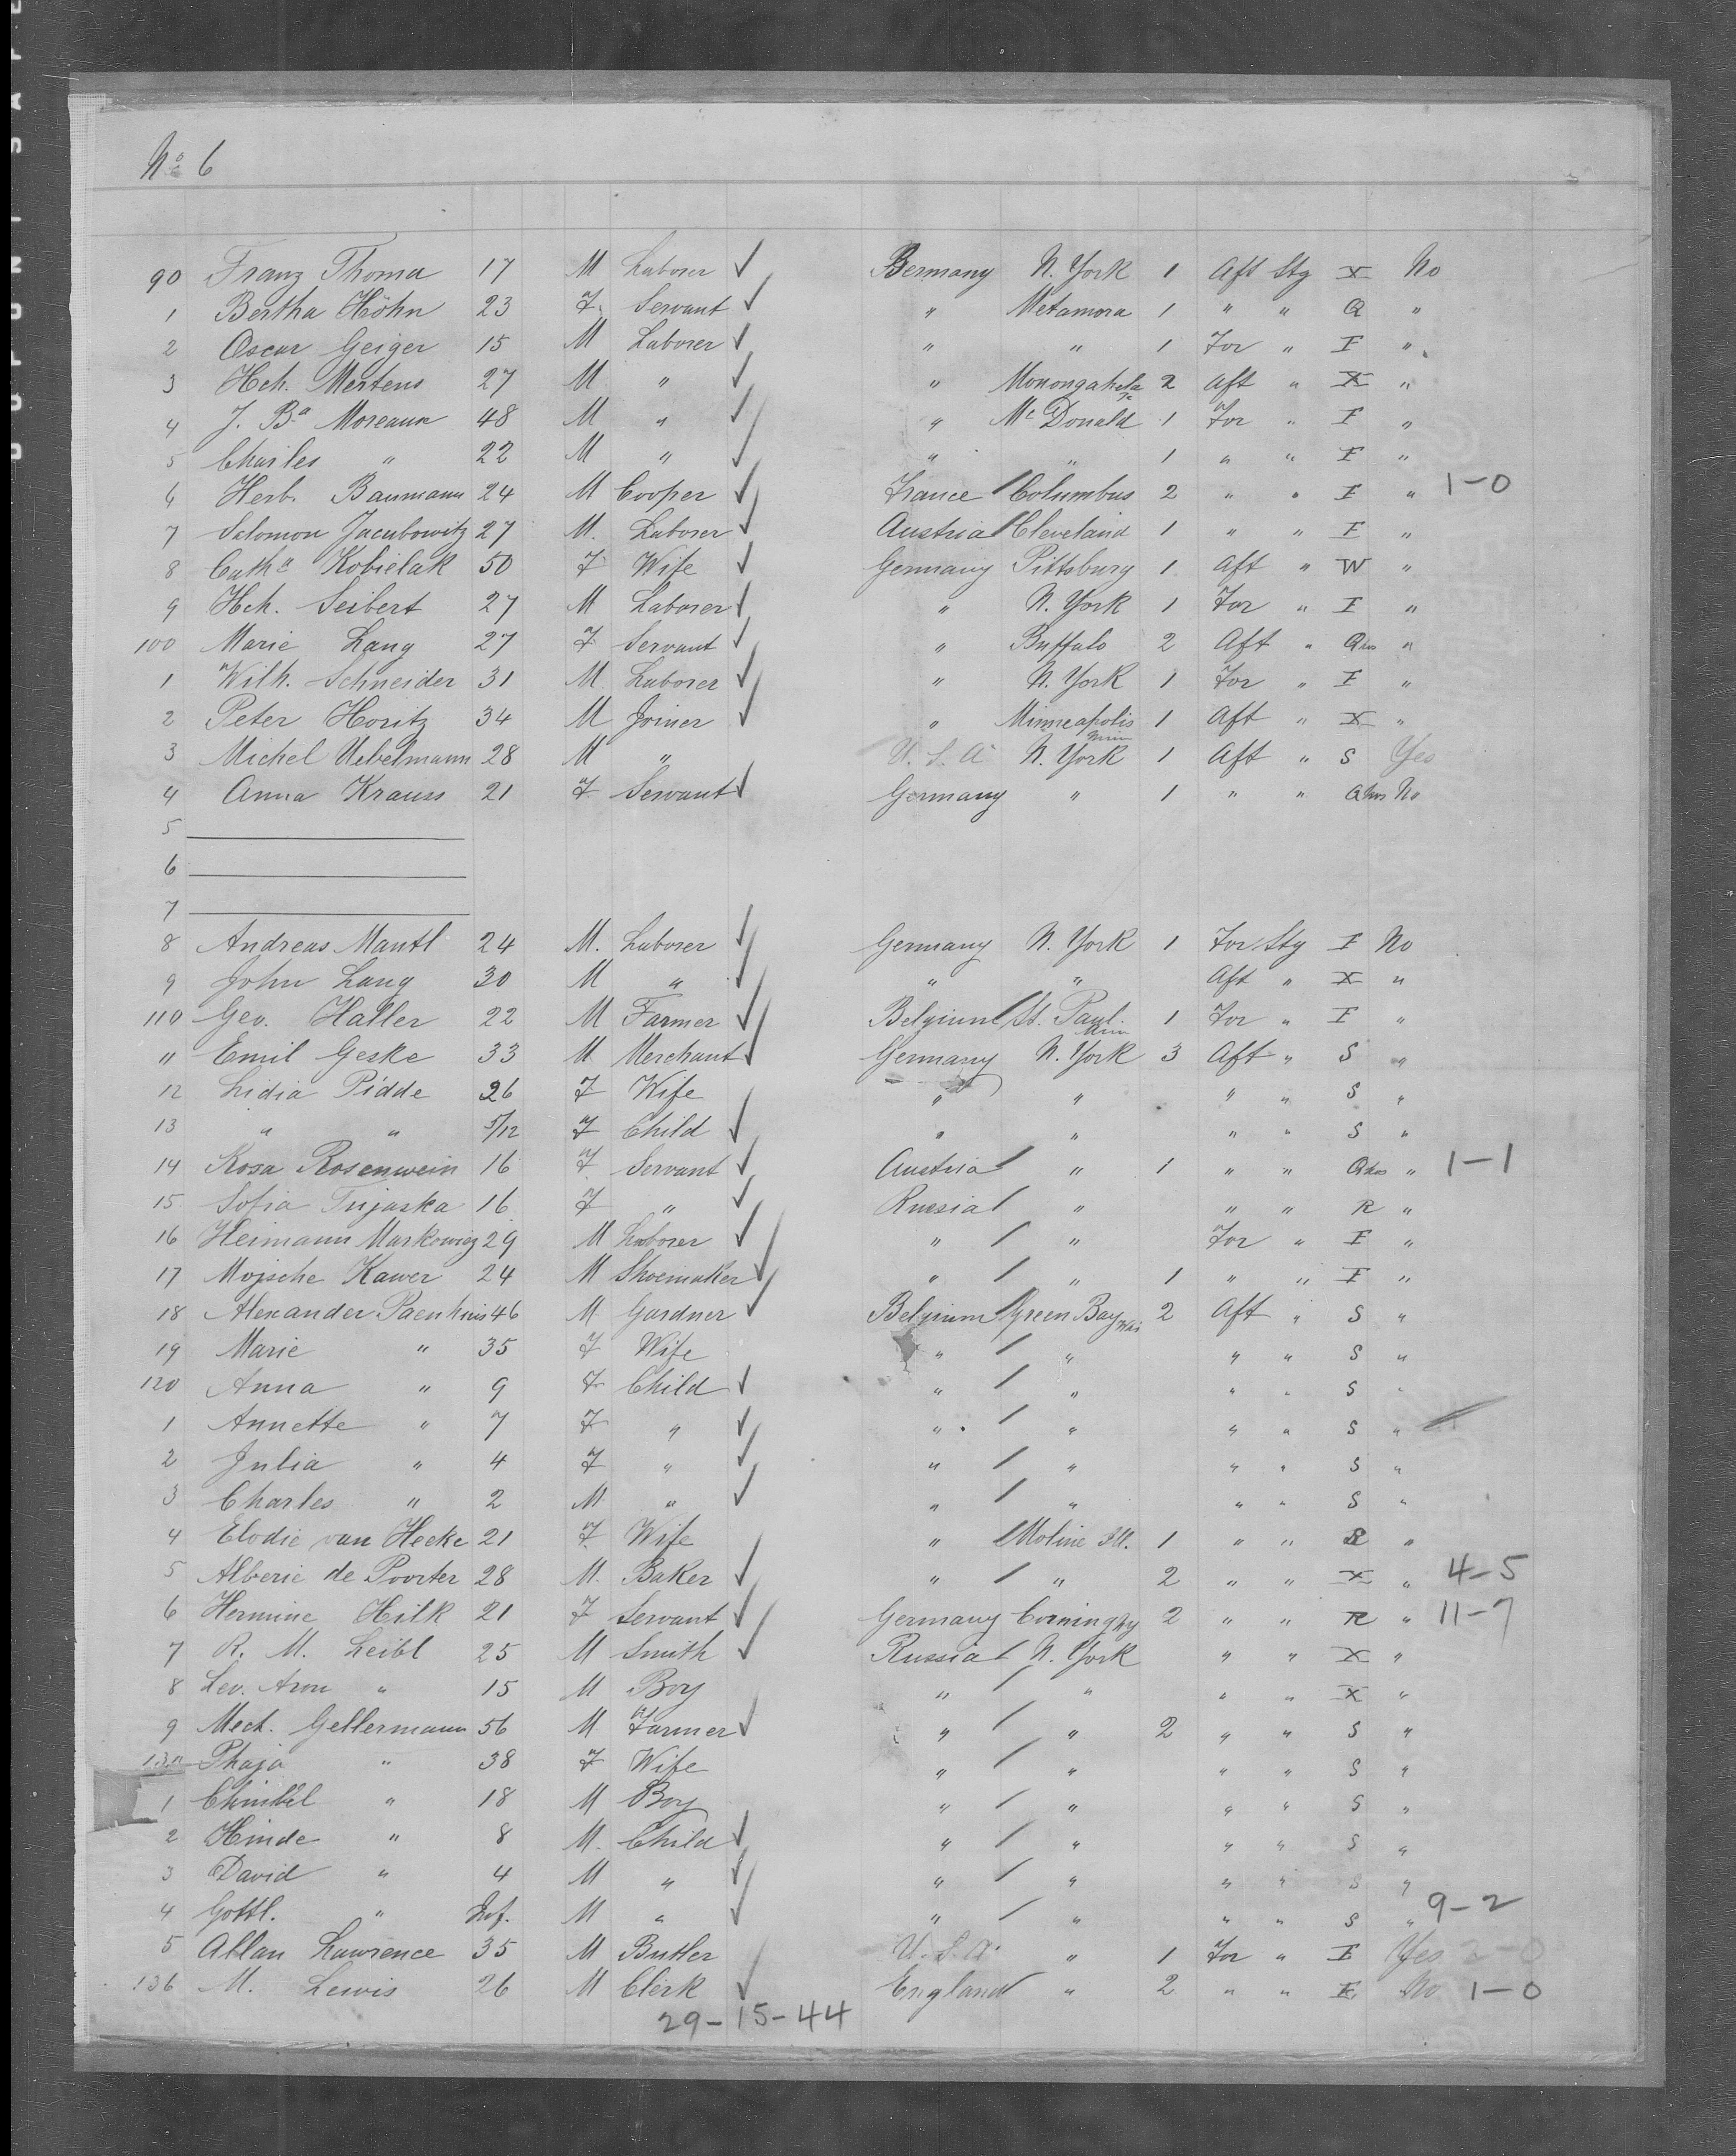 No 6
90 Franz Thoma 17 M Laborer ✓ Germany N. York 1 Aft Stg X No
1 Bertha Höhn 23 F. Servant ✓ " Metamora 1 " " Q "
2 Oscar Geiger 15 M Laborer ✓ " " 1 For " I "
3 Hch. Mertens 27 M " ✓ " Monongahela 2 Aft " X "
4 J. Ba Moreaux 48 M " ✓ " Mc Donald 1 For " I "
5 Charles " 22 M " ✓ " " 1 " " I "
6 Herb. Baumann 24 M Cooper ✓ France / Columbus 2 " " I " 1-0
7 Salomon Jacubowitz 27 M. Laborer ✓ Austria / Cleveland 1 " " I "
8 Catha Kobielak 50 F Wife ✓ Germany Pittsburg 1 Aft " W "
9 Hch. Seibert 27 M Laborer ✓ " N. York 1 For " I "
100 Marie Lang 27 F Servant ✓ " Buffalo 2 Aft " "
1 Wilh. Schneider 31 M Laborer ✓ " N. York 1 For " I "
2 Peter Horitz 34 M Joiner ✓ " Minneapolis Minn 1 Aft " X "
3 Michel Uebelmann 28 M " U. S. A N. York 1 Aft " S Yes
4 Anna Krauss 21 F Servant ✓ Germany " 1 " " No
5
6
7
8 Andreas Mantl 24 M. Laborer ✓ Germany N. York 1 For Stg I No
9 John Lang 30 M " ✓ " " Aft " X "
110 Geo. Haller 22 M Farmer ✓ Belgium / St. Paul. Minn 1 For " I "
" Emil Geske 33 M Merchant ✓ Germany N. York 3 Aft " S "
12 Lidia Pidde 26 F Wife " " " " S "
13 " " 5/12 F Child ✓ " " " " S "
14 Rosa Rosenwein 16 F Servant ✓ Austria / " 1 " " " 1-1
15 Sofia Trijaska 16 F " ✓ Russia / " " " R "
16 Heimann Markowicz 29 M Laborer ✓ " / " For " I "
17 Mojsche Kawer 24 M Shoemaker ✓ " / " 1 " " I "
18 Alexander Paenhuis 46 M Gardner ✓ Belgium / Green Bay Wis 2 Aft " S "
19 Marie " 35 F Wife " / " " " S "
120 Anna " 9 F Child ✓ " / " " " S "
1 Annette " 7 F " ✓ " / " " " S "
2 Julia " 4 F " ✓ " / " " " S "
3 Charles " 2 M " ✓ " / " " " S "
4 Elodie van Hecke 21 F Wife " / Moline Ill. 1 " " R "
5 Alberie de Poorter 28 M. Baker ✓ " / " 2 " " X " 4-5
6 Hermine Hilk 21 F Servant ✓ Germany Corning Ny 2 " " R " 11-7
7 R. M. Leibl 25 M Smith ✓ Russia / N. York " " X "
8 Lev. Aron " 15 M Boy " / " " " X "
9 Mech. Gellermann 56 M Farmer ✓ " / " 2 " " S "
130 Phaja " 38 F Wife " / " " " S "
1 " 18 M Boy " / " " " S "
2 Hinde " 8 M. Child ✓ " / " " " S "
3 David " 4 M " ✓ " / " " " S "
4 Gottl. " Inf. M " ✓ " / " " " S " 9-2
5 Allan Lawrence 35 M Butler U. S. A. " 1 For " I Yes 2-0
136 M. Lewis 26 M Clerk ✓ England / " 2 " " I No 1-0
29-15-44